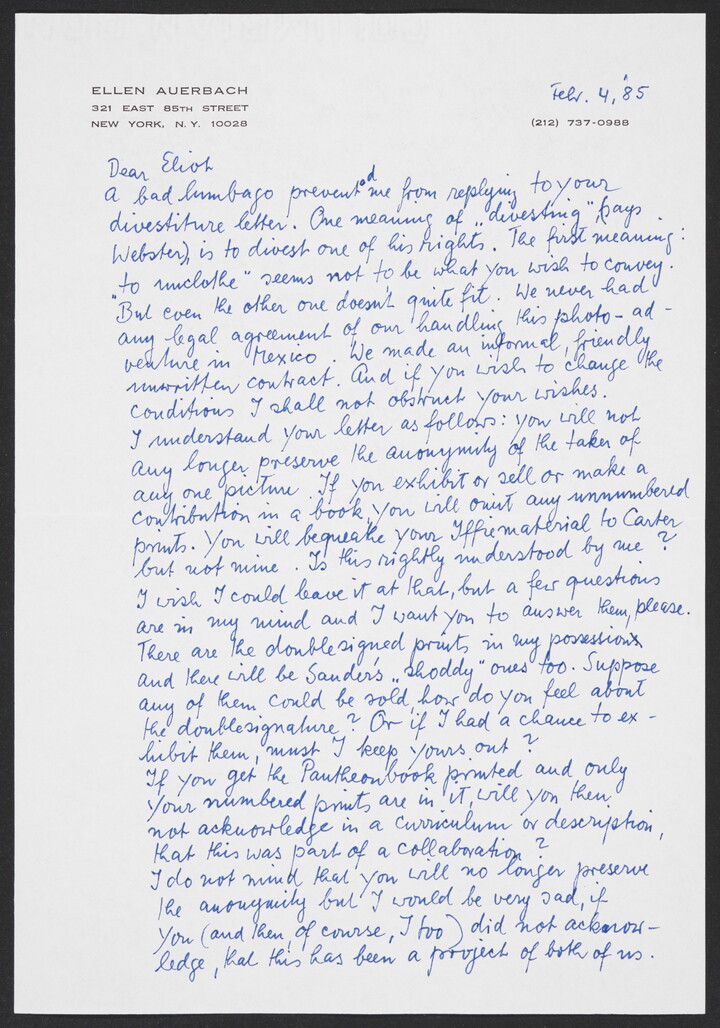 ELLEN AUERBACH
321 EAST 85TH STREET
NEW YORK, N.Y. 10028
Febr. 4, '85
(212) 737-0988
Dear Eliot
A bad lumbago prevented me from replying to your
divestiture letter. One meaning of „divesting" (says
Webster), is to divest one of his rights. The first meaning:
"to unclothe" seems not to be what you wish to convey.
But even the other one doesn't quite fit. We never had
any legal agreement of our handling this photo-ad-
venture in Mexico. We made an informal, friendly
unwritten contract. And if you wish to change the
conditions I shall not obstruct your wishes.
I understand your letter as follows: you will not
any longer preserve the anonymity of the taker of
any one picture. If you exhibit or sell or make a
contribution in a book, you will omit any unnumbered
prints. You will bequeathe your Iffie material to Carter
but not mine. Is this rightly understood by me?
I wish I could leave it at that, but a few questions
are in my mind and I want you to answer them, please.
There are the doublesigned prints in my possession
and there will be Sander's „shoddy" ones too. Suppose
any of them could be sold, how do you feel about
the doublesignature? Or if I had a chance to ex-
hibit them, must I keep yours out?
If you get the Pantheonbook printed and only
your numbered prints are in it, will you then
not acknowledge in a curriculum or description,
that this was part of a collaboration?
I do not mind that you will no longer preserve
the anonymity but I would be very sad, if
you (and then, of course, I too) did not acknow-
ledge, that this has been a project of both of us.